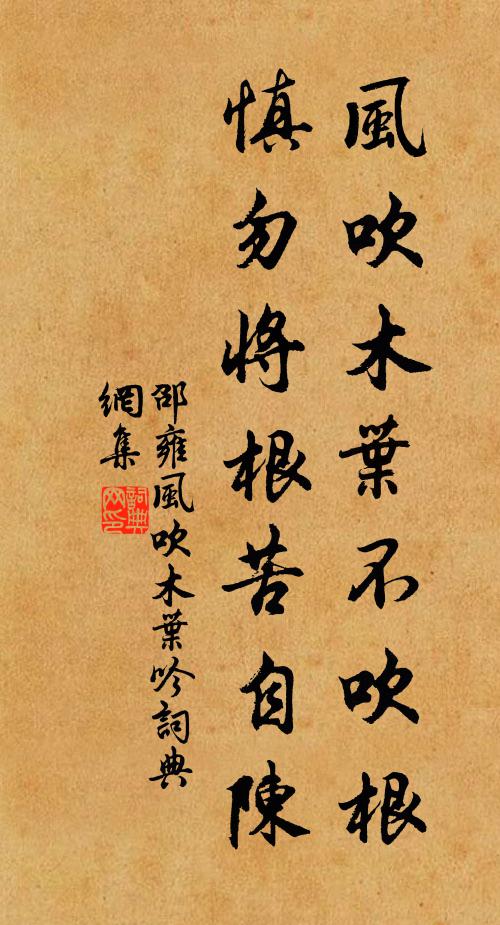 風吹木葉不吹根
慎勿將根苦自陳
邵雍風吹木葉吟詞典
網集
詞典
网印